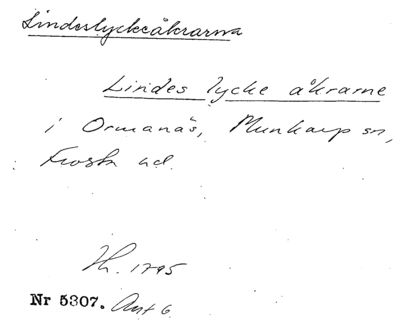 Lindeslyckeåkrarna
Lindes lycke åkrarne
i Ormanäs, Munkarp sn,
Frosta hd.
Th. 1795
Nr 5307. Avt 6